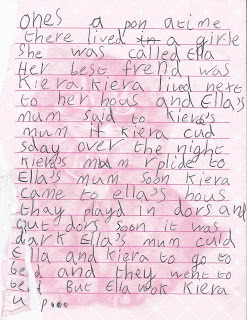 ones a pon a time
there lived in a girle
She was called Ella
Her best frend was
Kiera. Kiera lived next
to her hous and Ella's
mum said to Kiera's
mum if kiera cud
sday over the night
kiera's mum rplide to
Ella's mum soon Kiera
came to ella's hous
thay playd in dors and
out dors soon it was
dark Ella's mum culd
Ella and kiera to go to
bed and they went to
bed But Ella wok Kiera
up....